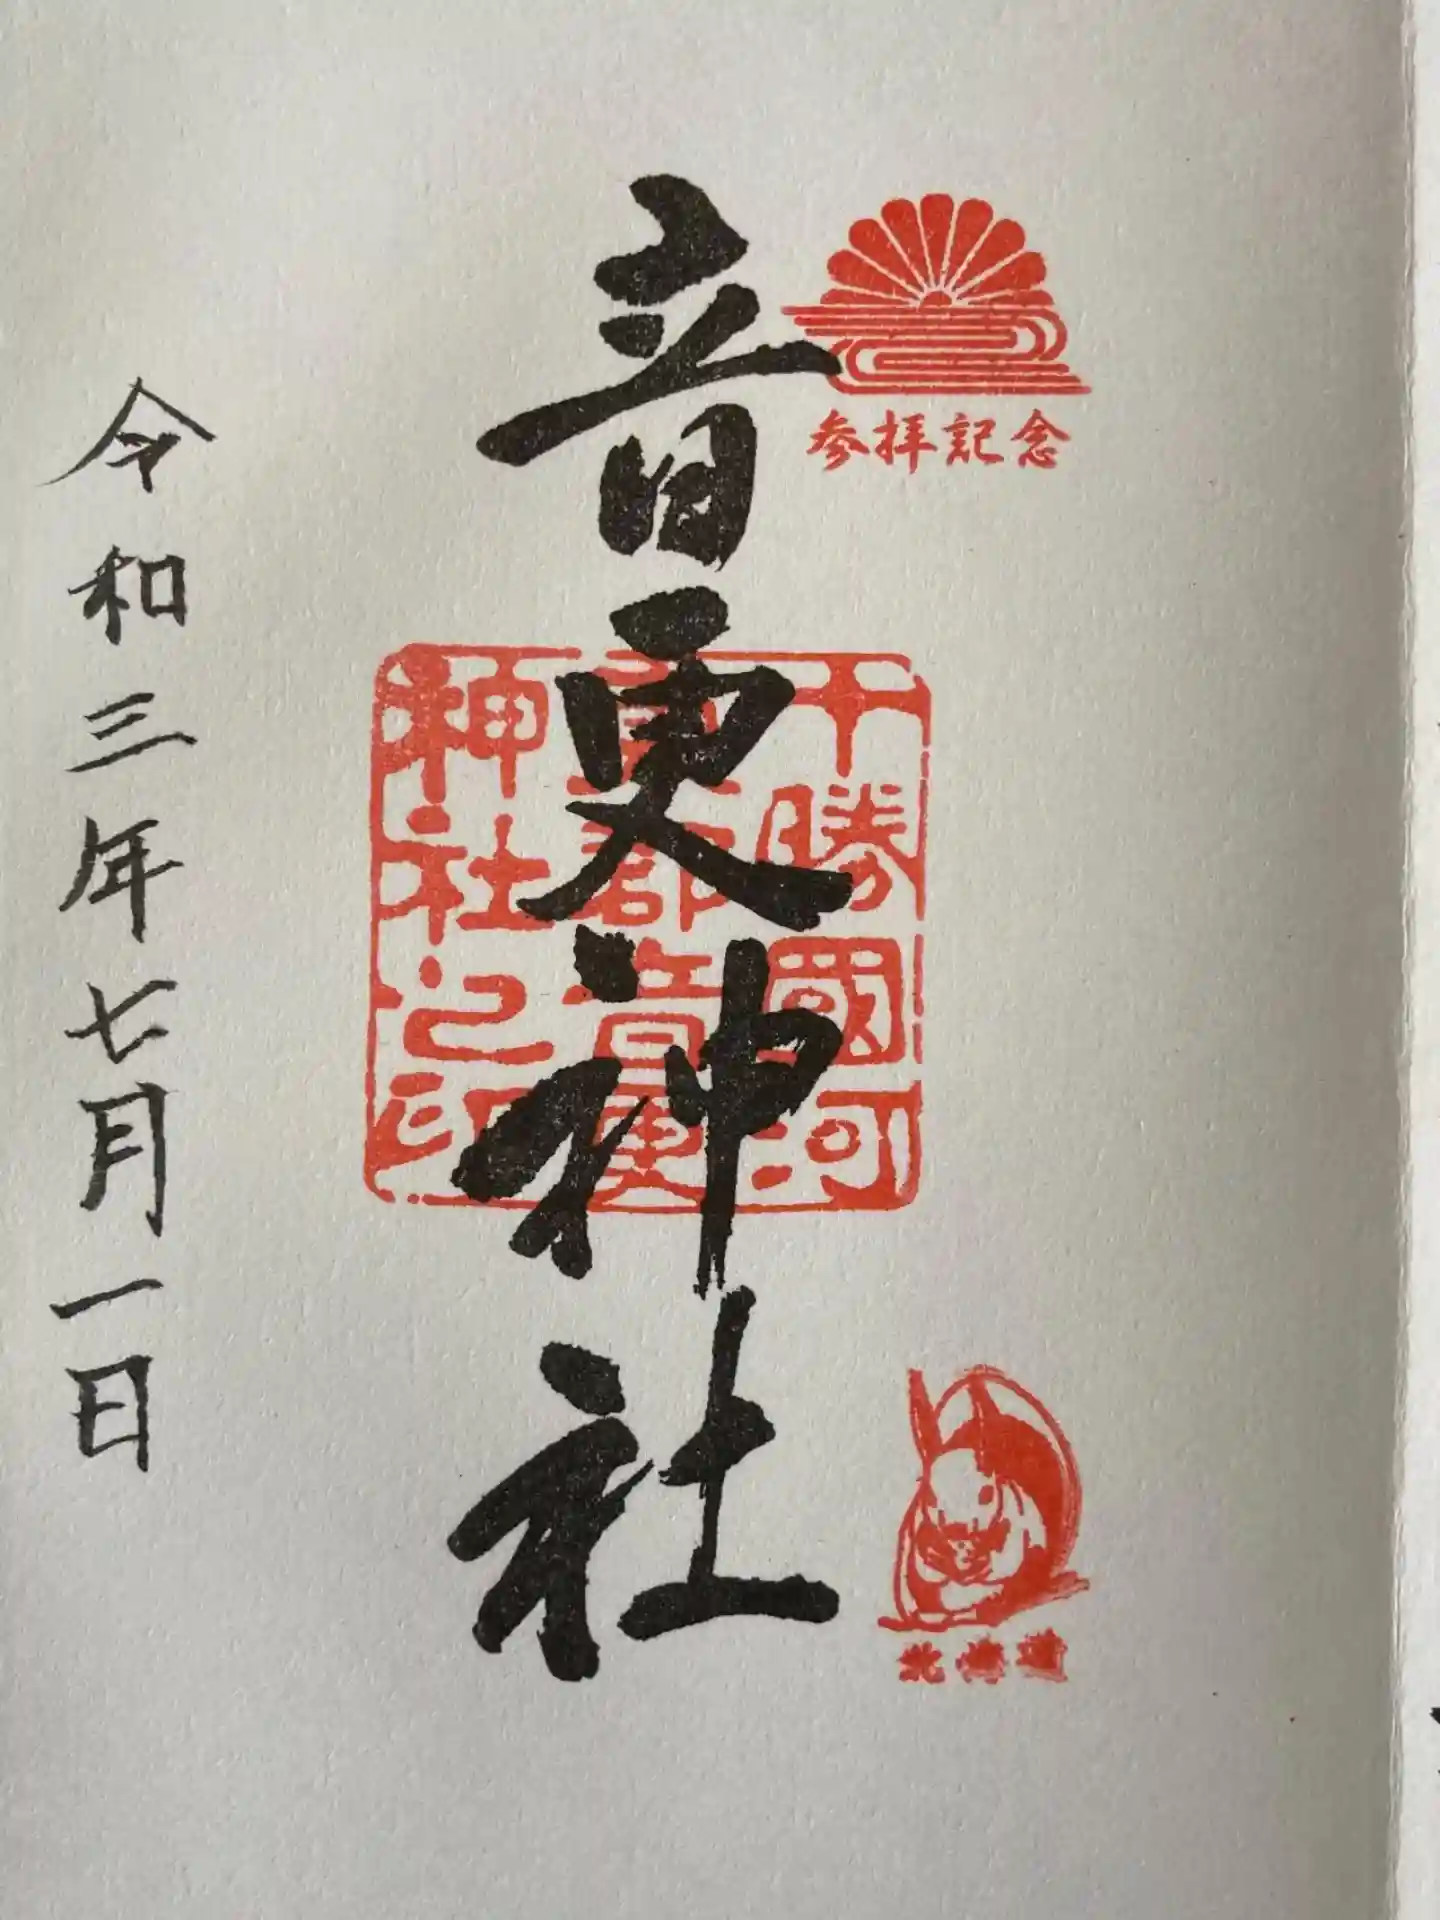 参拝記念
音更神社
十勝國河
東郡音更
神社之印
北海道
令和三年七月一日